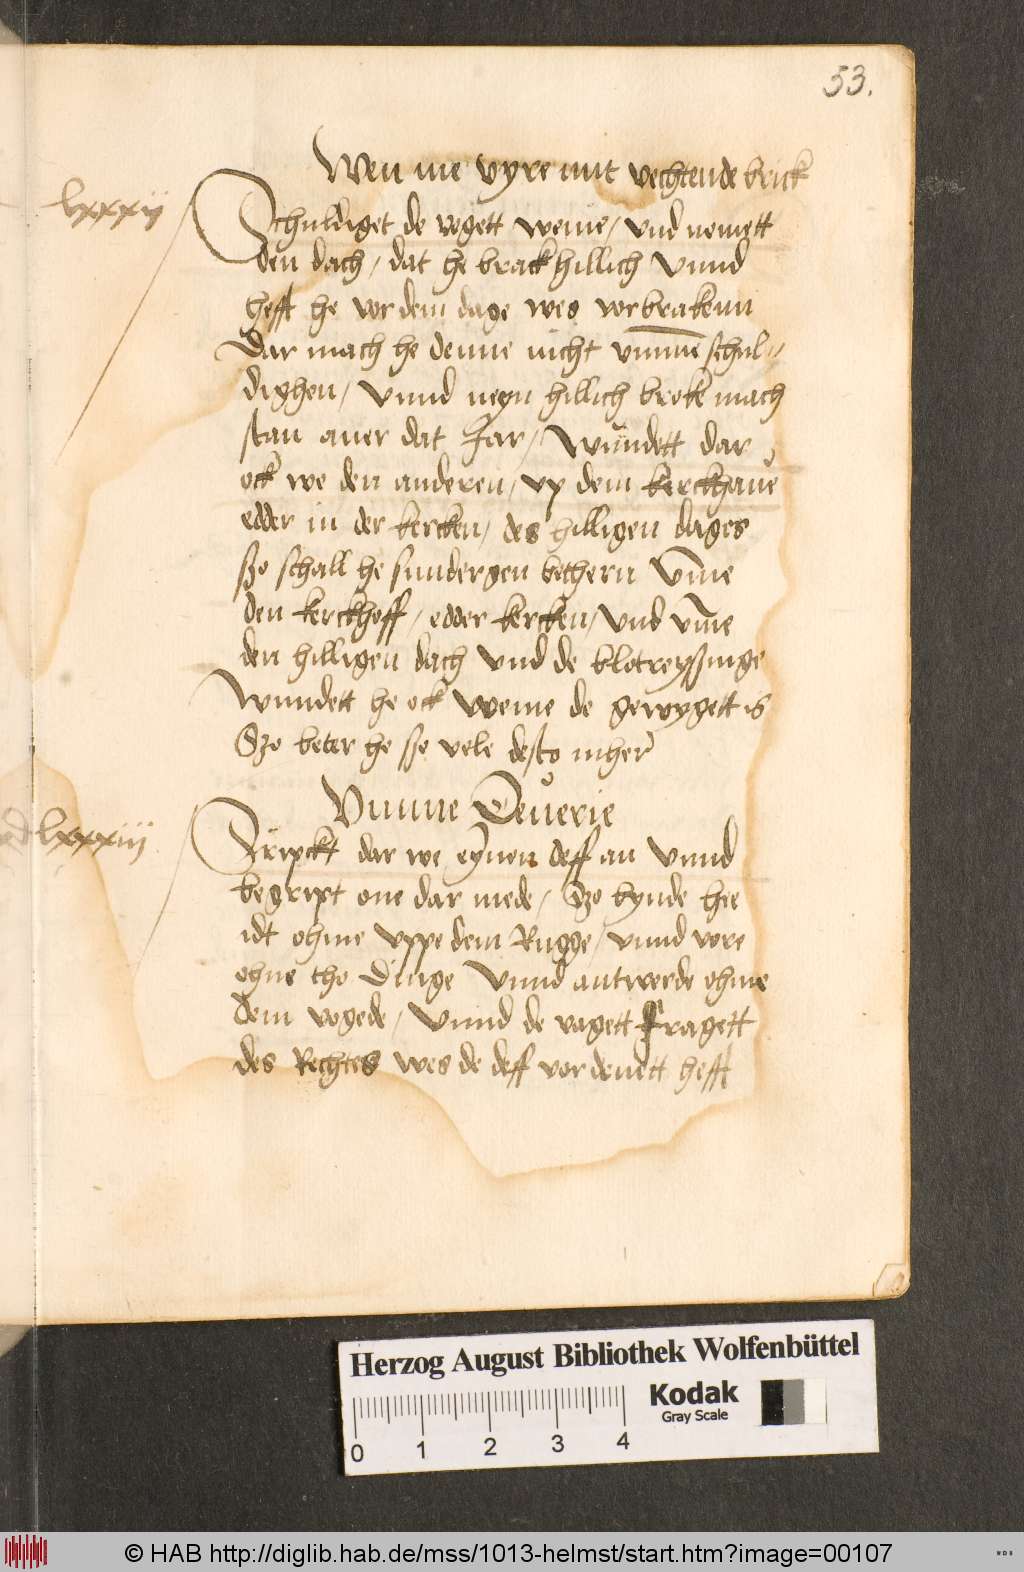 53.
Wen me vyre mit vechtende brick
lxxxij
Schuldiget de vogett weme / vnd nomett
den dach / dat he brack hillich Vnnd
hefft he vor dem dage wes vorbrakenn
Dar mach he denne nicht vmme schul„
dighen / Vnnd neyn hillich broke mach
stan auer dat Jar / Wundett dar
ock we den anderen / vp dem kerckhaue
edder in der kercken / des hilligen dages
szo schall he sundergen bethern Vme
den kerckhoff / edder kercken / Vnd vme
den hilligen dach Vnd de blotreyssinge
Wundett he ock weme de gewygett is
Szo beter he sso vele desto mher
Vmme Deuerie
lxxxiij
Kricht dar we eynen deff an Vnnd
begript one dar mede / Szo bynde hee
idt ohme vppe dem Rugge / vnnd vore
ohne tho Dinge Vnnd antwerde ohme
dem vogede / Vnnd de vagett Fragett
des Rechtes wes de deff vordenett hefft
Herzog August Bibliothek Wolfenbüttel
Kodak
Gray Scale
0 1 2 3 4
© HAB http://diglib.hab.de/mss/1013-helmst/start.htm?image=00107